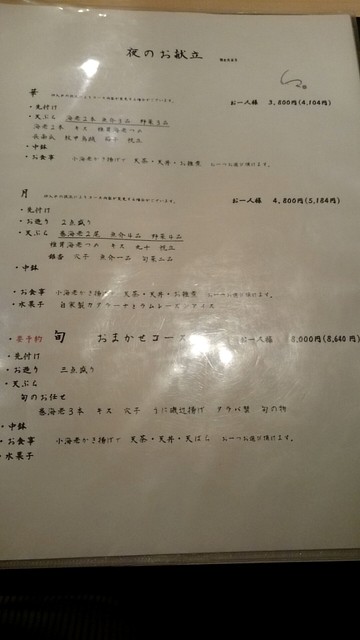 夜のお献立
華 お一人様 3,800円(4,104円)
・先付け
・天ぷら 海老2本 魚介3品 野菜3品
海老2本 キス 稚貝海老つめ
・中鉢
・お食事 小海老かき揚げで 天茶・天丼・お雑炊 お一つお選び頂けます。
月 お一人様 4,800円(5,184円)
・先付け
・お造り 2点盛り
・天ぷら 巻海老2尾 魚介4品 野菜4品
キス 丸十
銀杏 穴子 魚介一品 旬菜二品
・中鉢
・お食事 小海老かき揚げで 天茶・天丼・お雑炊 お一つお選び頂けます。
・水菓子 自家製カタラーナorラムレーズンアイス
・要予約 旬 おまかせコース お一人様 8,000円(8,640円)
・先付け
・お造り 三点盛り
・天ぷら
旬のお任せ
巻海老3本 キス 穴子 うに磯辺揚げ タラバ蟹 旬の物
・中鉢
・お食事 小海老かき揚げで 天茶・天丼・天ばら お一つお選び頂けます。
・水菓子